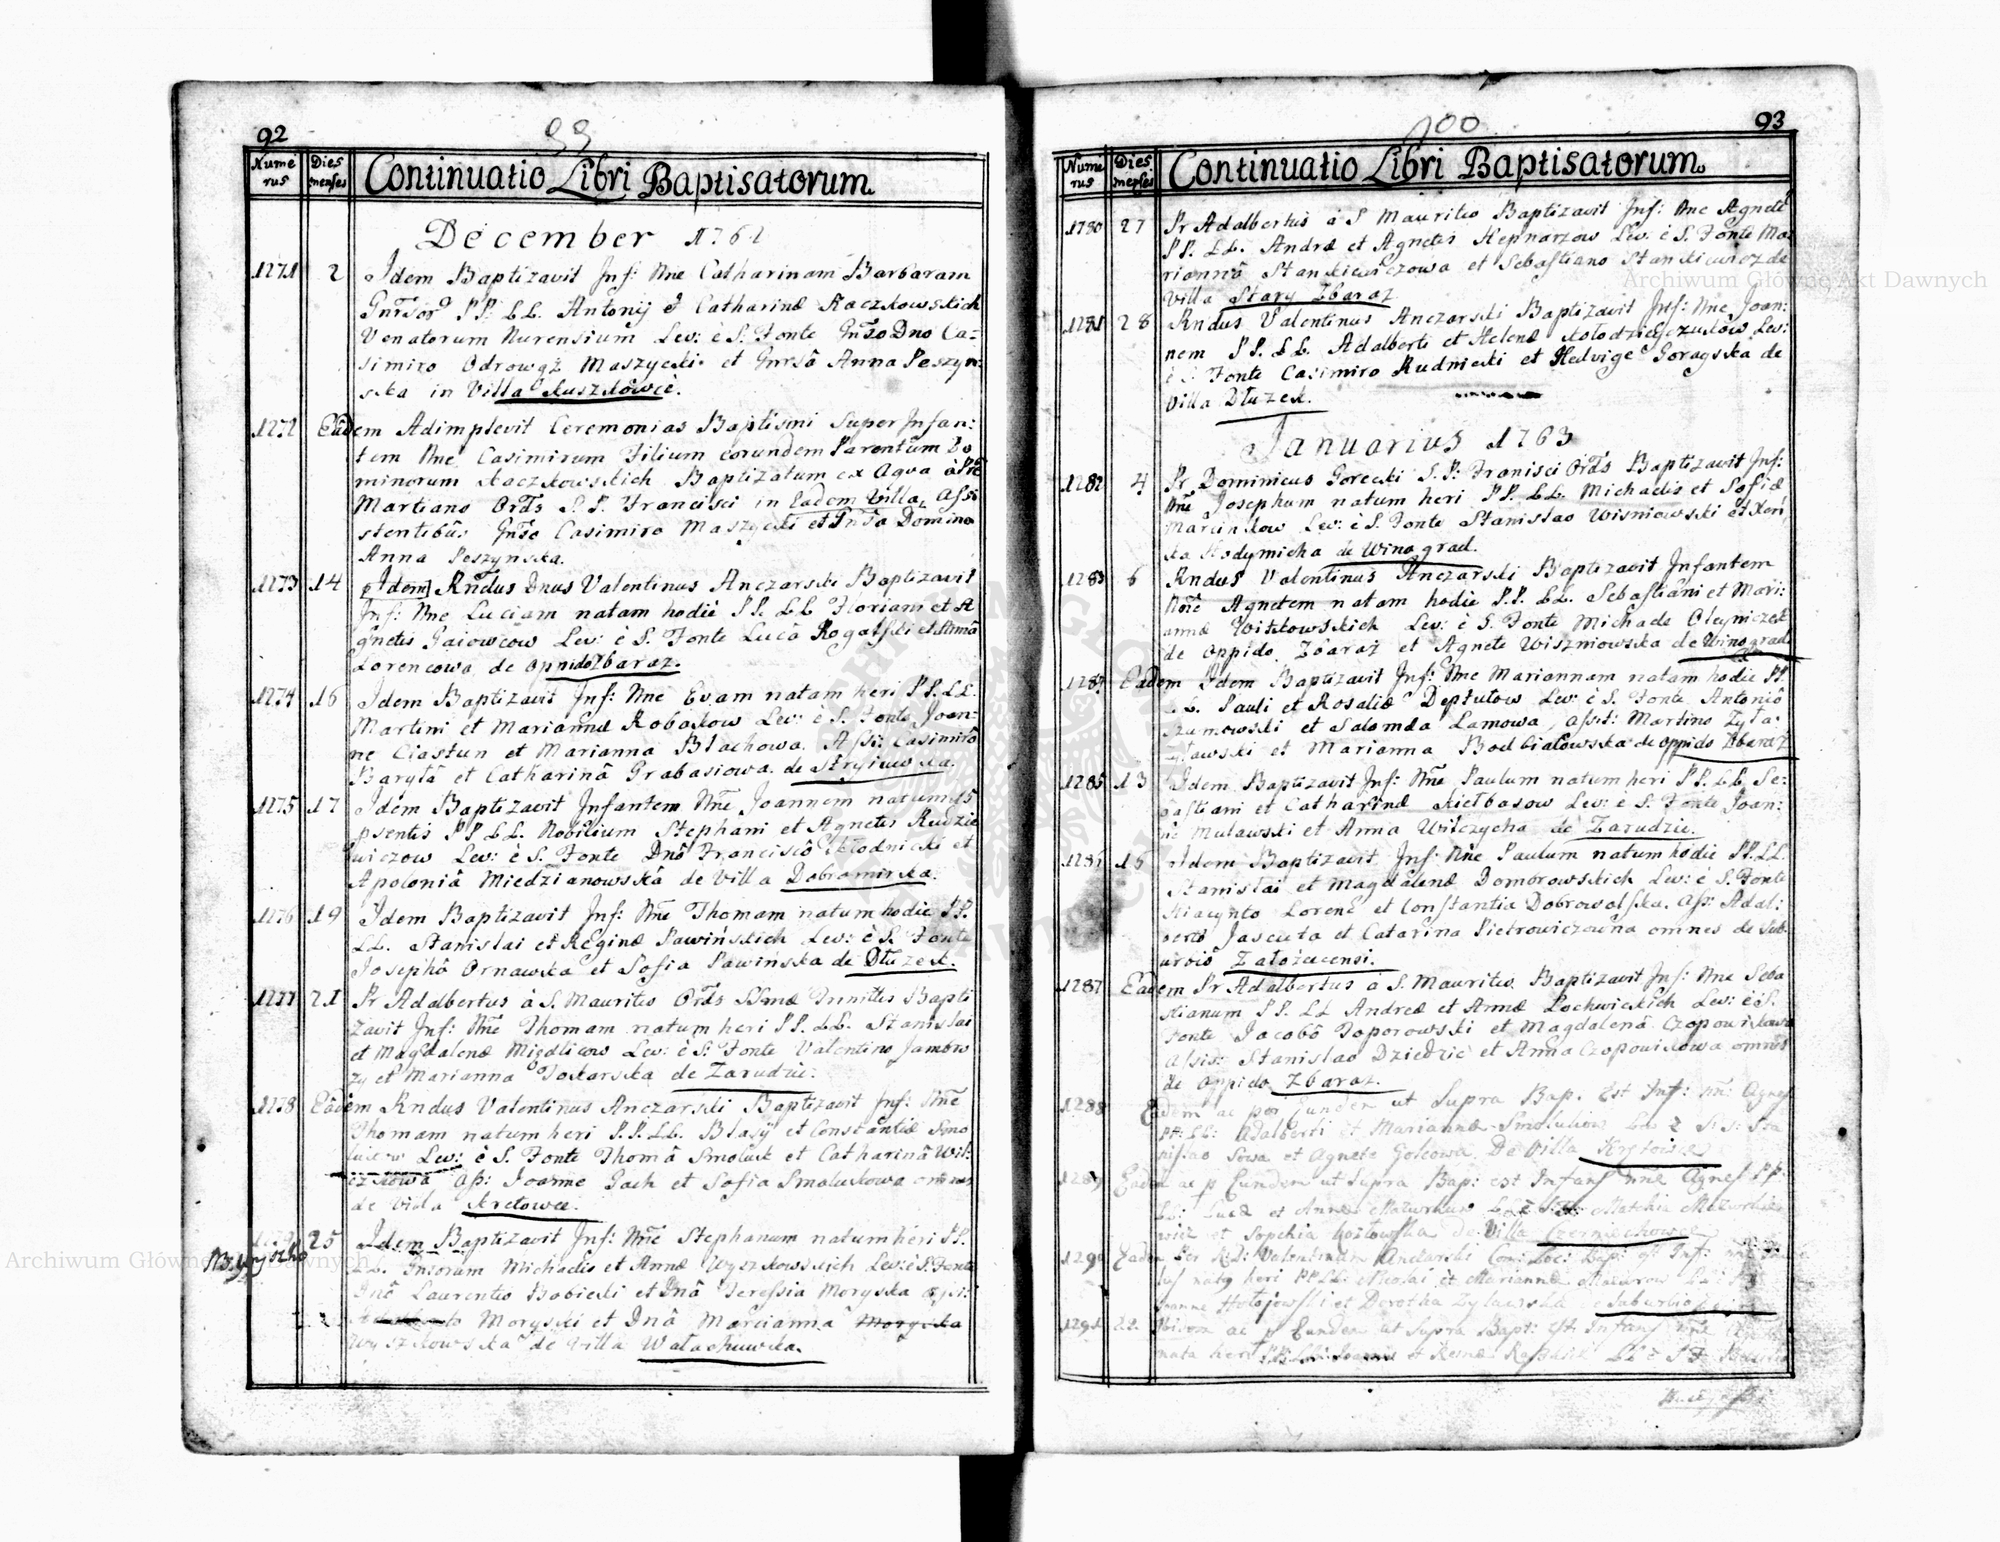 92
99
Nume
rus
Dies
menses
Continuatio Libri Baptisatorum
December 1762
1271 2 Idem Baptizavit Inf: Nne Catharinam Barbaram
PP: LL. Antonij et Catharinæ Kaczkowskich
Venatorum Nurensium Lev: è S. Fonte Dno Ca-
simiro Odrowąż Maszycki et Anna Peszyn:
ska in Villa Kuszkowce.
1272 Eadem Adimplevit Ceremonias Baptismi Super Infan:
tem Nne Casimirum Filium eorundem Parentum Do
minorum Kaczkowskich Baptizatum ex Aqua à Pre
Martiano Ordis S. P. Francisci in Eadem villa, Assi
stentibus Casimiro Maszycki et Domina
Anna Peszynska.
1273 14 Idem Rndus Dnus Valentinus Anczarski Baptizavit
Inf: Nne Luciam natam hodie PP. LL Floriani et A
gnetis Gaiowcow Lev: è S. Fonte Luca Rogalski et Anna
Lorencowa de oppido Zbaraz.
1274 16 Idem Baptizavit Inf: Nne Evam natam heri PP. LL.
Martini et Mariannæ Robakow Lev: è S. Fonte Joan:
ne Ciastun et Marianna Blachowa. Assi: Casimiro
Baryla et Catharinâ Grabasiowa. de Stryiowka.
1275 17 Idem Baptizavit Infantem Nne Joannem natum 15
psentis PP LL. Nobilium Stephani et Agnetis Rudzie
wiczow Lev: è S. Fonte Dnô Franciscô Kłodnicki et
Apoloniâ Miedzianowskâ de Villa Dobromirka.
1276 19 Idem Baptizavit Inf: Nne Thomam natum hodie PP.
LL. Stanislai et Reginæ Pawińskich Lev: è S. Fonte
Josephô Ornawska et Sofia Pawińska de Dłużek.
1277 21 Pr Adalbertus à S. Mauritio Ordis SSmæ Trinittis Bapti
zavit Inf: Nne Thomam natum heri PP. LL. Stanislai
et Magdalenæ Migdlicow Lev: è S: Fonte Valentino Jambro
zy et Marianna Tokarska de Zarudzie:
1278 Eadem Rndus Valentinus Anczarski Baptizavit Inf: Nne
Thomam natum heri P.P. LL. Blasij et Constantiæ Smo
lukow Lev: è S. Fonte Thomâ Smoluk et Catharinâ Wil:
czkowa Ass: Joanne Gach et Sofia Smolukowa omnes
de Villa Kretowce.
25 Idem Baptizavit Inf: Nne Stephanum natum heri PP.
LL. Michaelis et Annæ Wyszkowskich Lev: è S. Fonte
Dnô Laurentio Babiecki et Dnâ Teressia Moryska
Moryski et Dnâ Marcianna Moryska
Wyszkowska de Villa Wałachuwka.
93
100
Nume
rus
Dies
menses
Continuatio Libri Baptisatorum
1780 27 Pr Adalbertus à S Mauritio Baptizavit Inf: Nne Agnetē
PP. LL. Andræ et Agnetis Hepnarzow Lev: è S. Fonte Ma
riannâ Stankiewiczowa et Sebastiano Stankiewicz de
villa Stary Zbaraz
1281 28 Rndus Valentinus Anczarski Baptizavit Inf: Nne Joan:
nem PP. LL. Adalberti et Helenæ Kołodzieyczukow Lev:
è S. Fonte Casimiro Rudnicki et Hedvige Goragska de
Villa Dłużek.
Januarius 1763
1282 4 Pr Dominicus Gorecki S. P: Francisci Ordis Baptizavit Inf:
Nne Josephum natum heri PP. LL. Michaelis et Sofiæ
Marcinkow Lev: è S. Fonte Stanislao Wisniowski et Xen
ka Hodymicha de Winograd.
1283 6 Rndus Valentinus Anczarski Baptizavit Infantem
Nne Agnetem natam hodie P.P. LL. Sebastiani et Mari:
annæ Woitkowskich Lev: è S. Fonte Michaele Oleyniczek
de oppido Zbaraż et Agnete Wiszniowska de Winograd
1284 Eadem Idem Baptizavit Inf: Nne Mariannam natam hodie PP.
LL. Pauli et Rosaliæ Deptułow Lev: è S. Fonte Antoniô
Szumowski et Salomea Lamowa, Assist: Martino Zyta:
et Marianna Bodbiałowska de oppido Zbaraz
1285 13 Idem Baptizavit Inf: Nne Paulum natum heri PP. LL Se:
bastiani et Catharinæ Kiełbasow Lev: è S. Fonte Joan:
ne Mulawski et Anna Wilczycha de Zarudzie.
15 Idem Baptizavit Inf: Nne Paulum natum hodie PP. LL.
Stanislai et Magdalenæ Dombrowskich Lev: è S. Fonte
Hiacynto Lorenc et Constantia Dobrowolska. Ass: Adal:
berto Jascuta et Catarina Pietrowiczowna omnes de Sub:
urbio Załoźecensi.
1287 Eadem Pr Adalbertus à S. Mauritio Baptizavit Inf: Nne Seba
stianum PP. LL Andreæ et Annæ Lochwickich Lev: è S.
Fonte Jacobô Toporowski et Magdalenâ Czopowikowa
Assis: Stanislao Dziedzic et Anna Czopowikowa omnes
de Oppido Zbaraz.
1288 Eadem ac per Eunden ut Supra Bap. Est Inf: nne Agnes
PP: LL: Adalberti et Mariannæ Smolukow
Sowa et Agnete Golcowa De Villa Krętowce
1289 Eadem ac p Eundem ut Supra Bap: est Infans nne Agnes PP:
LL: Lucæ et Annæ Mazurkow Mathia Mazurkie
wicz et Sophia Kozłowska de Villa Czerniechowce
1290 Eadem Per R.D: Valentinum Anczarski Com: Loc: Bap: est Inf: nne
natus heri PP LL: Nicolai et Mariannæ Mazurow
Joanne Hołojowski et Dorotha Zylawska Suburbio
1291 22 ac p Eundem ut Supra Bapt: est Infans nne
nata heri PP. LL.
Archiwum Główne Akt Dawnych
Archiwum Główne Akt Dawnych